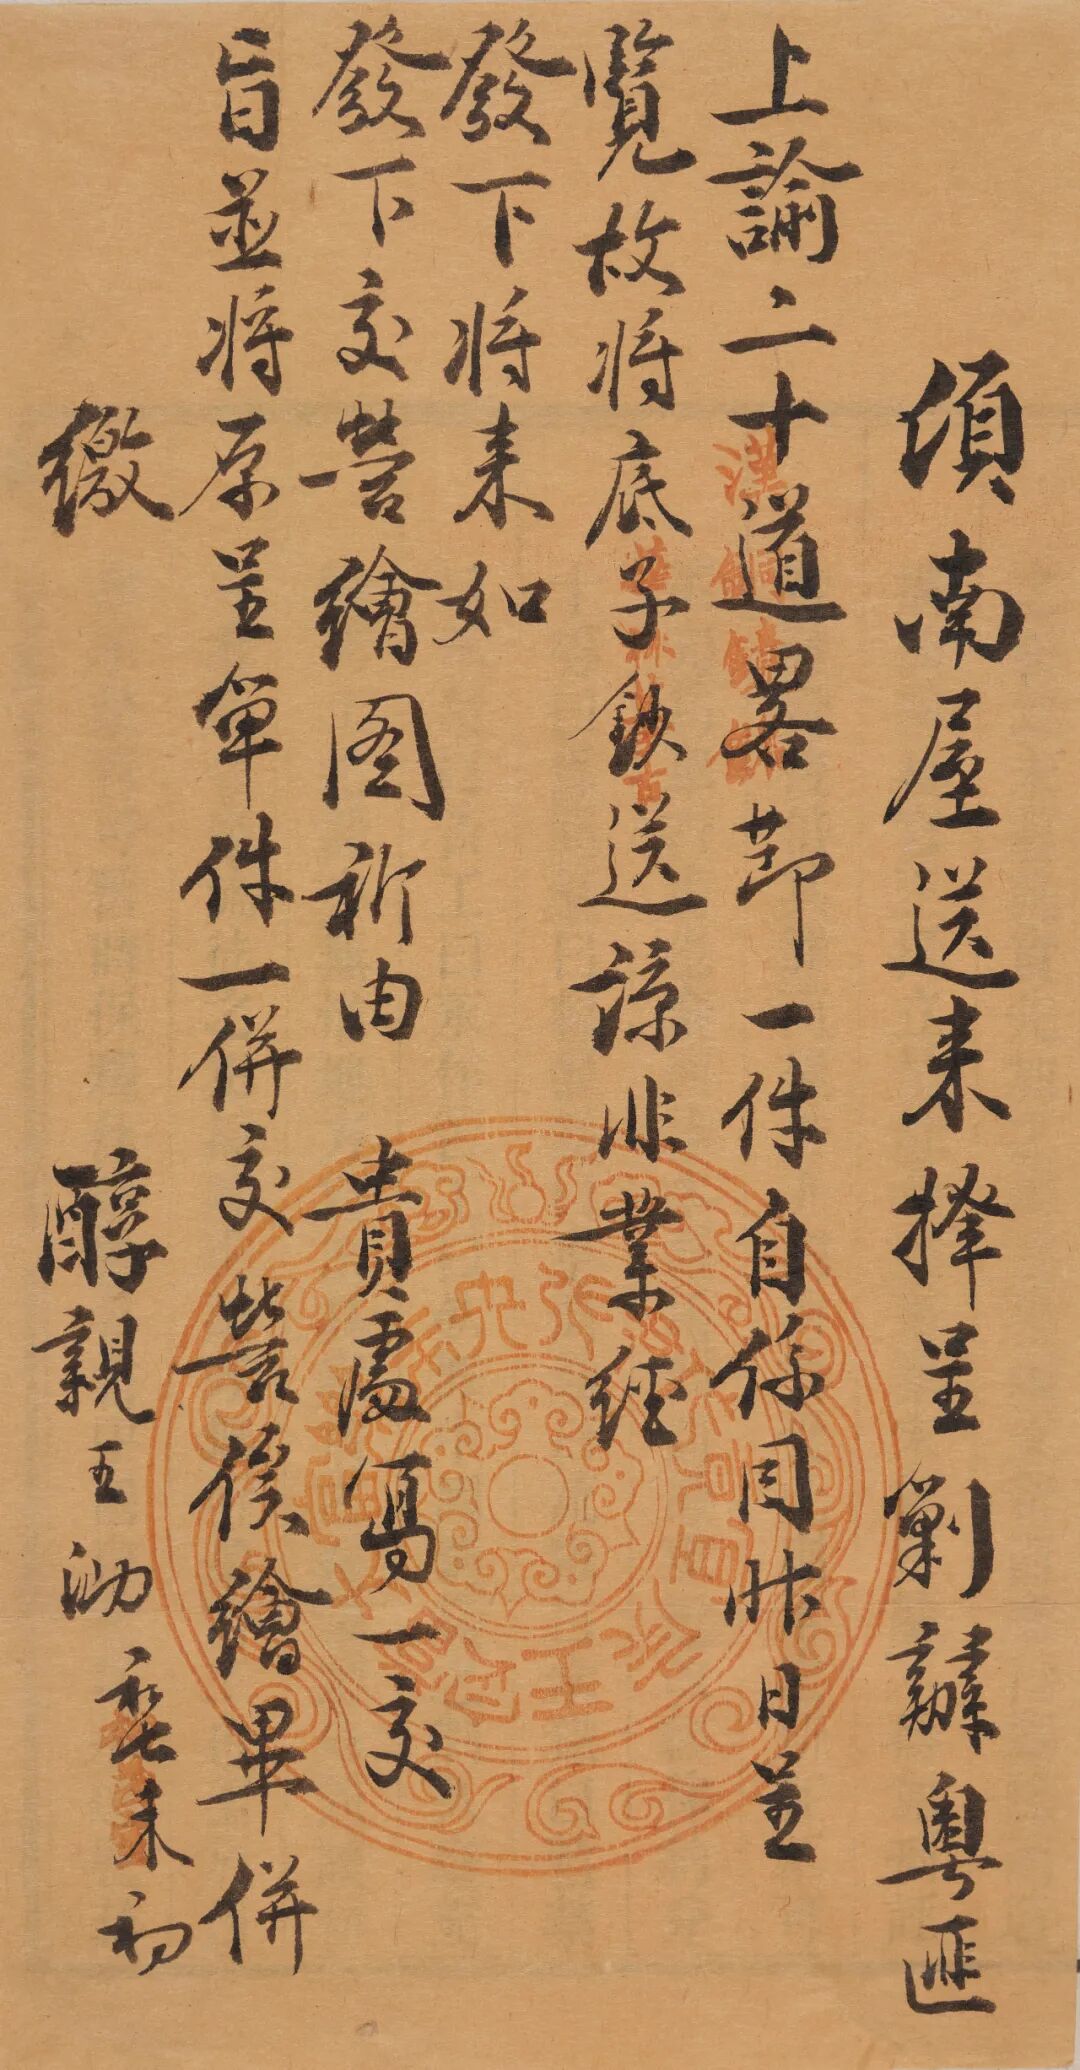 頃南屋送来擇呈剿辦粵匪
上諭二十道畧節一件自係同昨日呈
覽故將底子鈔送諒非業經
發下將来如
發下交營繪图祈由
貴處寫一交
旨並將原呈單件一併交營俟繪畢併
繳
醇親王泐
癸未初